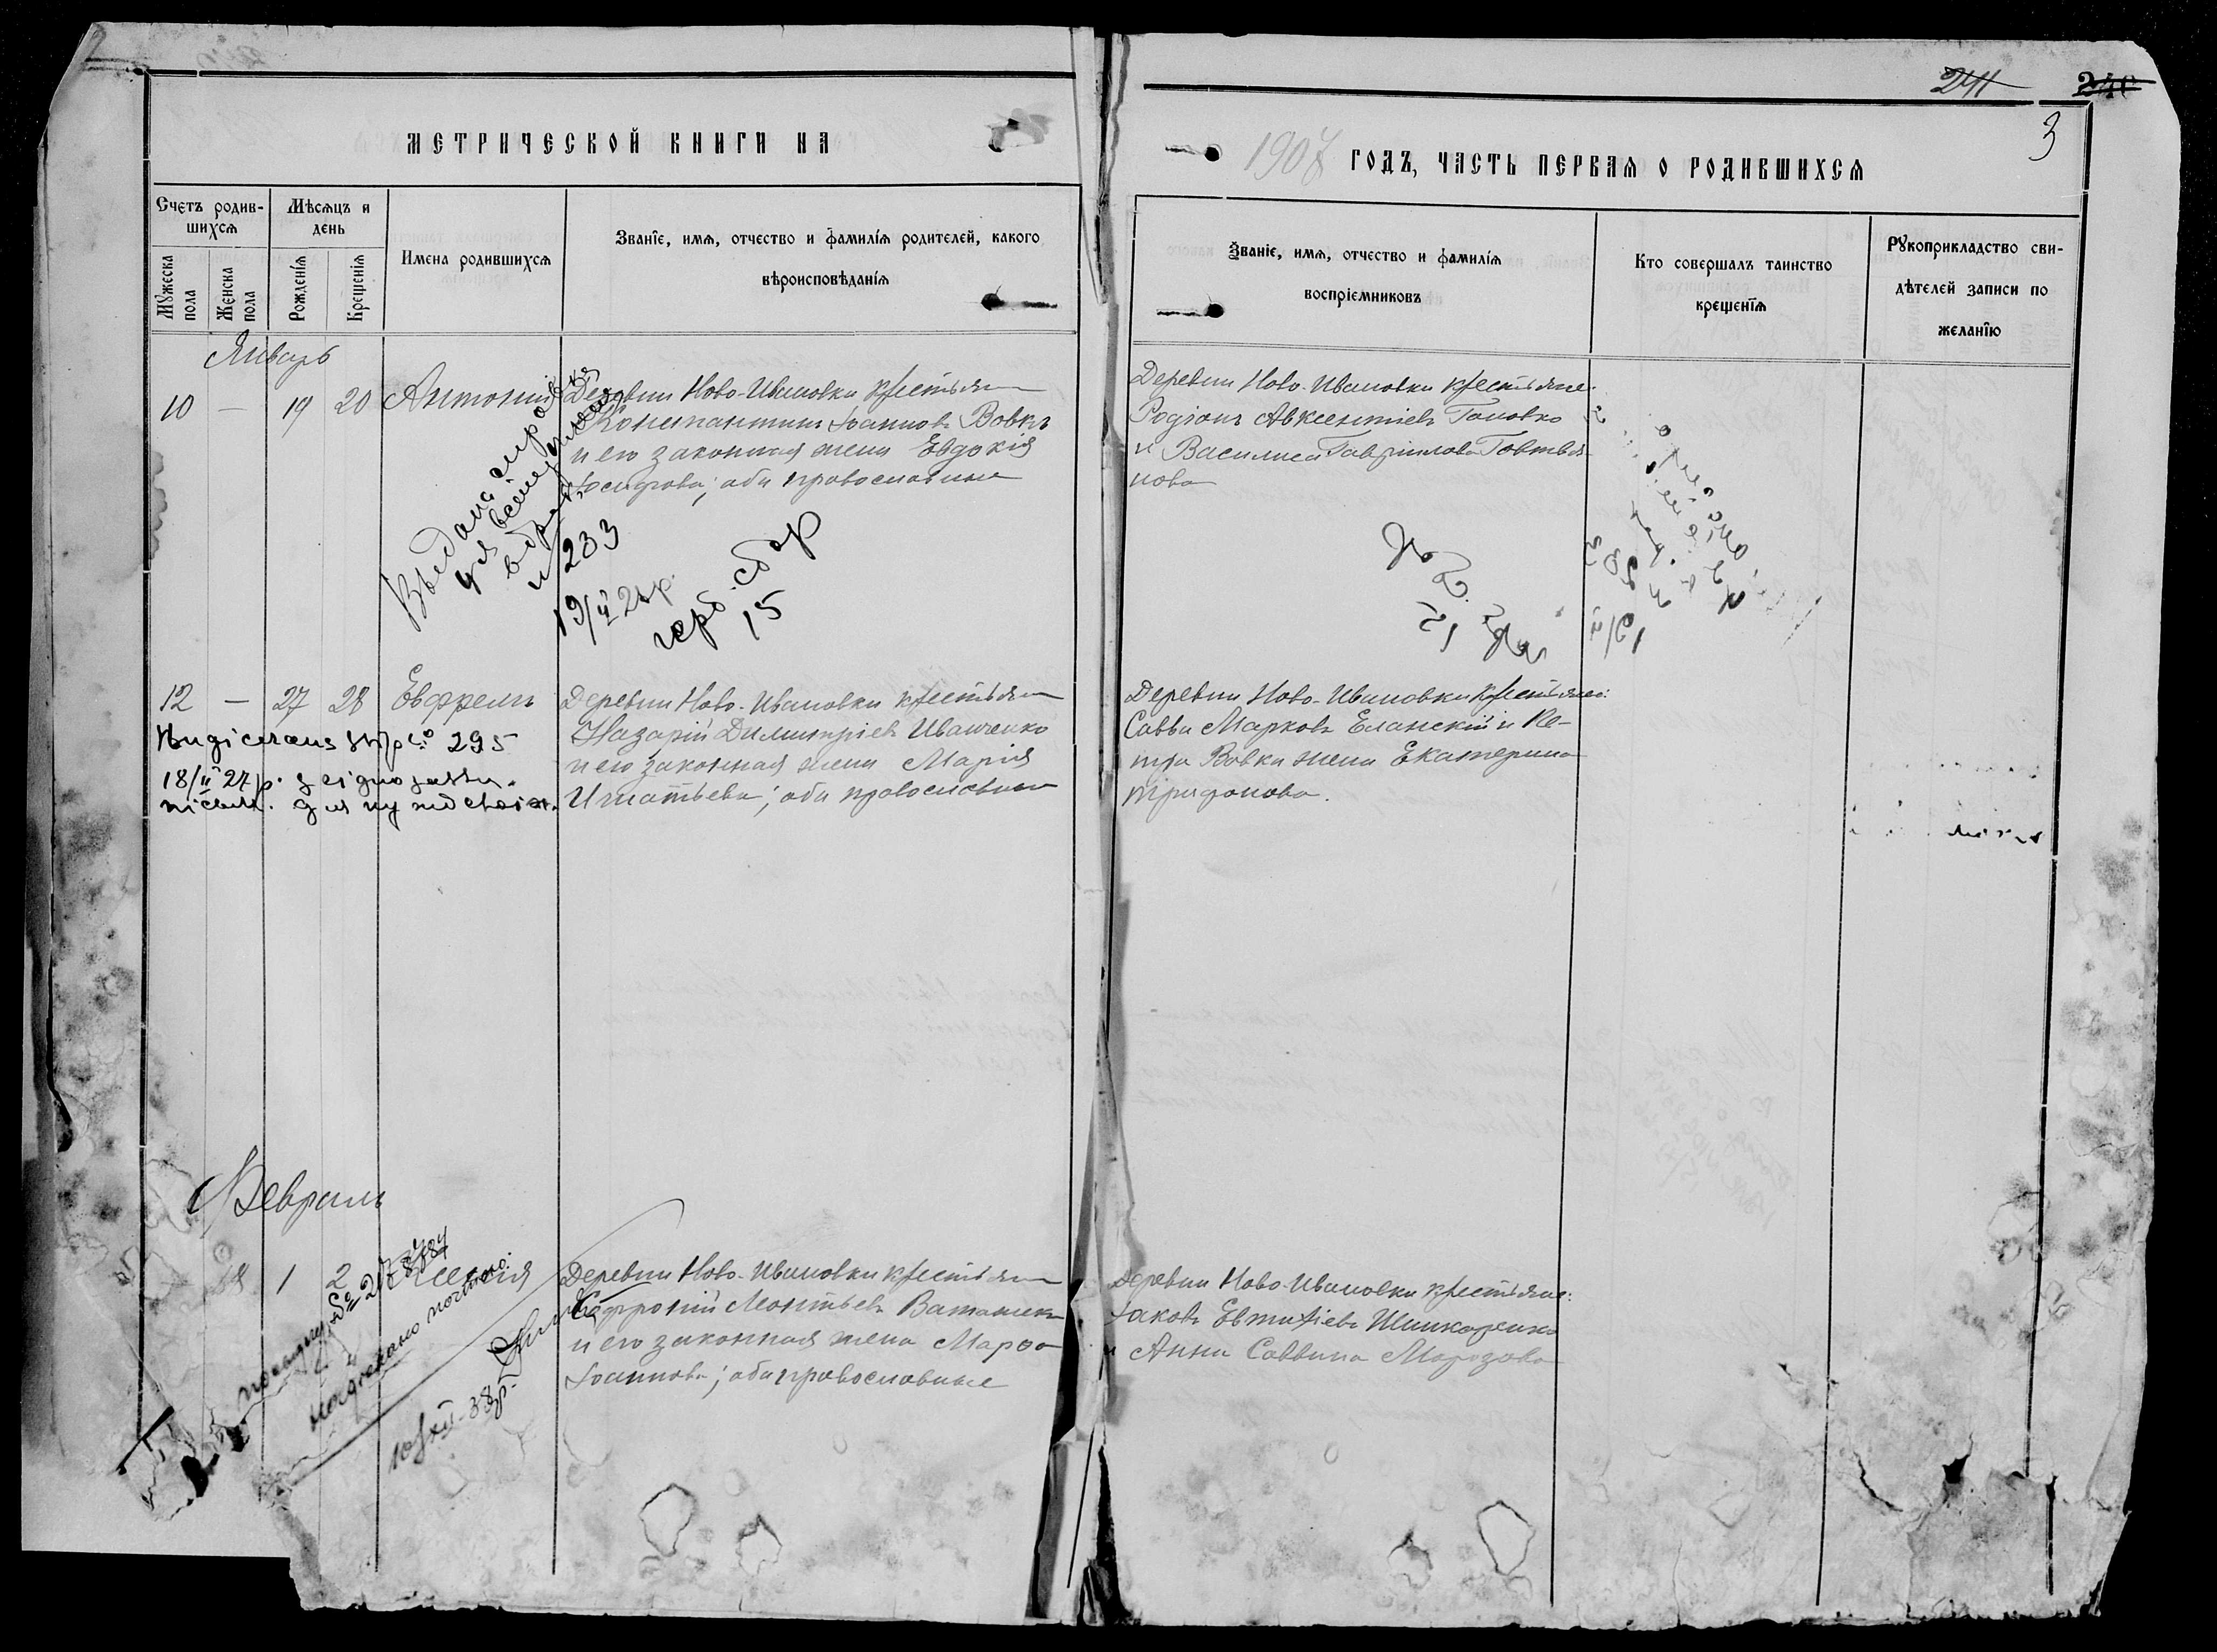 241 240
3
МЕТРИЧЕСКОЙ КНИГИ НА
1907 ГОДЪ, ЧАСТЬ ПЕРВАЯ О РОДИВШИХСЯ
Счетъ родив-
шихся
Мужеска
пола
Женска
пола
Мѣсяцъ и
день
Рожденія
Крещенія
Имена родившихся
Званіе, имя, отчество и фамилія родителей, какого
вѣроисповѣданія
Званіе, имя, отчество и фамилія
воспріемниковъ
Кто совершалъ таинство
крещенія
Рукоприкладство сви-
дѣтелей записи по
желанію
Январь
10 — 19 20 Антоній
Деревни Ново-Ивановки крестьян
Константинъ Іоанновъ Вовкъ
и его законная жена Евдокія
Іосифова; оба православные
Деревни Ново-Ивановки крестьяне:
Родіонъ Авксентіевъ Головко
и Василиса Гавріилова Говтвя-
нова
Выдана
для
233
19/II 24 р.
герб. сбор
15
12 — 27 28 Евфремъ
Деревни Ново-Ивановки крестьян
Назарій Димитріевъ Иващенко
и его законная жена Марія
Игнатьева; оба православные
Деревни Ново-Ивановки крестьяне:
Савва Марковъ Еланскій и Пе-
тра Вовка жена Екатерина
Трифонова.
295
18/II 27 р.
Февраль
1 2 Ксенія
Деревни Ново-Ивановки крестьян
Софроній Леонтьевъ
и его законная жена Марѳа
Іоаннова; оба православные
Деревни Ново-Ивановки крестьяне:
Іаковъ Евтихіевъ Шинкаренко
и Анна Саввина Морозова
10/XII-38 р.